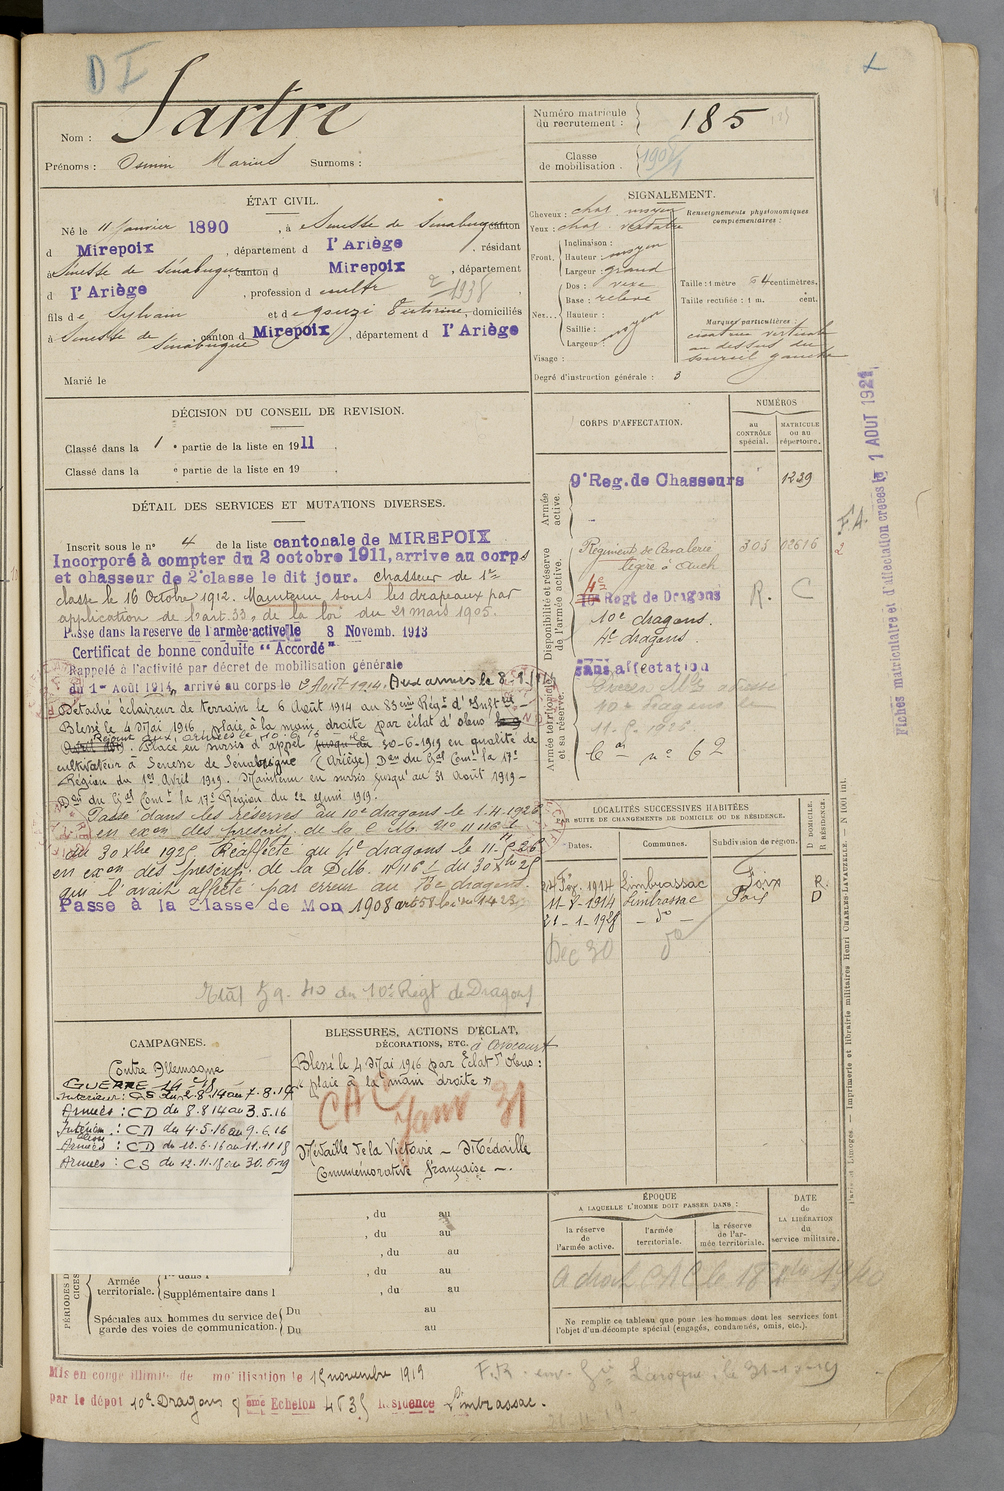 D I
Nom : Sartre
Prénoms : Osmin Marius Surnoms :
Numéro matricule du recrutement : 185
Classe de mobilisation . 1907
ÉTAT CIVIL.
Né le 11 Janvier 1890 , à Senesse de Senabugue canton
d Mirepoix , département d l'Ariège , résidant
à Senesse de Sénabugue, canton d Mirepoix , département
d l'Ariège , profession d cultr
2 1938
fils de Sylvain et de Gouzi Victorine, domiciliés
à Senesse de Sénabugue canton d Mirepoix , département d l'Ariège
Marié le
SIGNALEMENT.
Cheveux : chat. moyen
Yeux : chat. verdatre
Renseignements physionomiques complémentaires :
Front. Inclinaison :
Hauteur : moyen
Largeur : grand
Nez... Dos : vexe
Base : relevé
Hauteur :
Saillie : moyen
Largeur :
Taille : 1 mètre 64 centimètres.
Taille rectifiée : 1 m. cent.
Marques particulières :
cicatrice verticale
au dessus du
sourcil gauche
Visage :
Degré d'instruction générale : 3
DÉCISION DU CONSEIL DE REVISION.
Classé dans la 1 e partie de la liste en 1911
Classé dans la e partie de la liste en 19 .
DÉTAIL DES SERVICES ET MUTATIONS DIVERSES.
Inscrit sous le n° 4 de la liste cantonale de MIREPOIX
Incorporé à compter du 2 octobre 1911, arrive au corps
et chasseur de 2e classe le dit jour. Chasseur de 1re
classe le 16 Octobre 1912. Maintenu sous les drapeaux par
application de l'art. 33, de la loi du 21 mars 1905.
Passe dans la reserve de l'armée active le 8 Novemb. 1913
Certificat de bonne conduite "Accordé"
Rappelé à l'activité par décret de mobilisation générale
du 1er Août 1914, arrivé au corps le 3 Août 1914. Aux armées le 8.8.1914
Détaché éclaireur de terrain le 6 Août 1914 au 83em Régt d'Inftrie
Blessé le 4 Mai 1916 plaie à la main droite par éclat d'obus
Placé en sursis d'appel jusqu'au 30-6-1919 en qualité de
cultivateur à Senesse de Senabugue (Ariège) Don du Gal Comt la 17e
Région du 1er Avril 1919. Maintenu en sursis jusqu'au 31 Août 1919 -
Don du Gal Comt la 17e Région du 22 Juin 1919.
Passé dans les réserves au 10e dragons le 1.4.1926
en exon des prescrip. de la C.M. N° 11116
du 30 Xbre 1925. Réaffecté au 4e dragons le 11.5.26
en exon des prescrip. de la D.M. 11116 du 30 Xbre 25
qui l'avait affecté par erreur au 10e dragons.
Passe à la Classe de Mon 1908 art 58
10e Régt de Dragons
CORPS D'AFFECTATION.
NUMÉROS
au CONTRÔLE spécial.
MATRICULE ou au répertoire.
Armée active.
9e Reg. de Chasseurs 1239
Disponibilité et réserve de l'armée active.
Régiment de Cavalerie 303 02616
légère à Auch
4e
10e Regt de Dragons R. C
10e dragons.
4e dragons.
Armée territoriale et sa réserve.
sans affectation
10e dragons le
11-5-1926
n° 62
F.A.
Fiches matriculaire et d'affectation créées le 1 AOUT 1921
LOCALITÉS SUCCESSIVES HABITÉES
PAR SUITE DE CHANGEMENTS DE DOMICILE OU DE RÉSIDENCE.
Dates. Communes. Subdivision de région. D. DOMICILE. R. RÉSIDENCE.
24 Fév. 1914 Limbrassac Foix R.
11-8-1914 Limbrassac Foix D
21-1-1928 - do -
Dec 30 do
CAMPAGNES.
Contre Allemagne
GUERRE 14-18
Intérieur : CS du 2.8.14 au 7.8.14
Armées : CD du 8.8.14 au 3.5.16
Intérieur : CD du 4.5.16 au 9.6.16
Armées : CD du 10.6.16 au 11.11.18
Armées : CS du 12.11.18 au 30.5.19
BLESSURES, ACTIONS D'ÉCLAT, DÉCORATIONS, ETC.
à Avocourt
Blessé le 4 Mai 1916 par Eclat d'obus :
"plaie à la main droite"
CAC Janv 31
Médaille de la Victoire - Médaille
Commémorative française -.
, du au
, du au
, du au
, du au
Armée territoriale.
Supplémentaire dans l , du au
Spéciales aux hommes du service de garde des voies de communication.
Du au
Du au
ÉPOQUE
A LAQUELLE L'HOMME DOIT PASSER DANS :
la réserve de l'armée active.
l'armée territoriale.
la réserve de l'armée territoriale.
DATE de LA LIBÉRATION du service militaire.
a droit CAC le 18 1940
Ne remplir ce tableau que pour les hommes dont les services font l'objet d'un décompte spécial (engagés, condamnés, omis, etc.).
Paris et Limoges. — Imprimerie et librairie militaires Henri CHARLES-LAVAUZELLE. — N 1001 int.
Mis en congé illimité de mobilisation le 15 novembre 1919
par le dépôt 10e Dragons 8 ème Echelon 4635 Résidence Limbrassac.